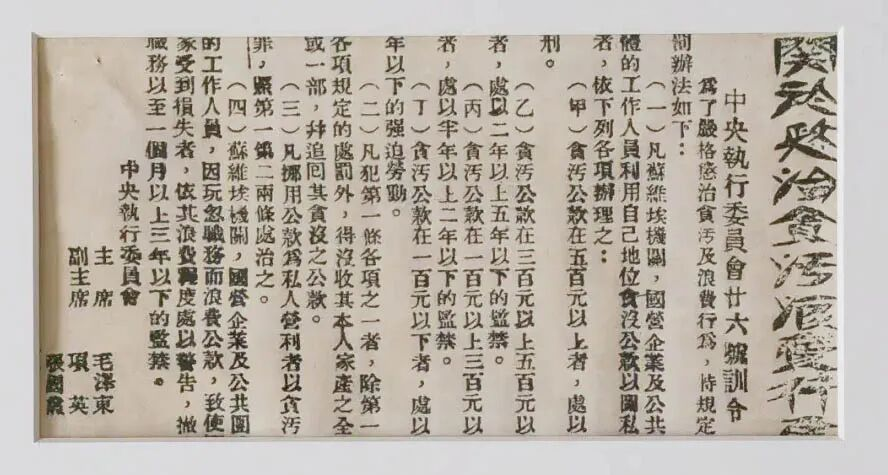 關於政治貪污浪費行
中央執行委員會廿六號訓令
爲了嚴格懲治貪污及浪費行爲，特規定
罰辦法如下：
（一）凡蘇維埃機關，國營企業及公共
體的工作人員利用自己地位貪沒公款以圖私
者，依下列各項辦理之：
（甲）貪污公款在五百元以上者，處以
刑。
（乙）貪污公款在三百元以上五百元以
者，處以二年以上五年以下的監禁。
（丙）貪污公款在一百元以上三百元以
者，處以半年以上二年以下的監禁。
（丁）貪污公款在一百元以下者，處以
年以下的强迫勞動。
（二）凡犯第一條各項之一者，除第一
各項規定的處罰外，得沒收其本人家產之全
或一部，幷追回其貪沒之公款。
（三）凡挪用公款爲私人營利者以貪污
罪，照第一第二兩條處治之。
（四）蘇維埃機關，國營企業及公共團
的工作人員，因玩忽職務而浪費公款，致使
家受到損失者，依其浪費程度處以警告，撤
職務以至一個月以上三年以下的監禁。
中央執行委員會
主席 毛澤東
副主席 項英
張國燾